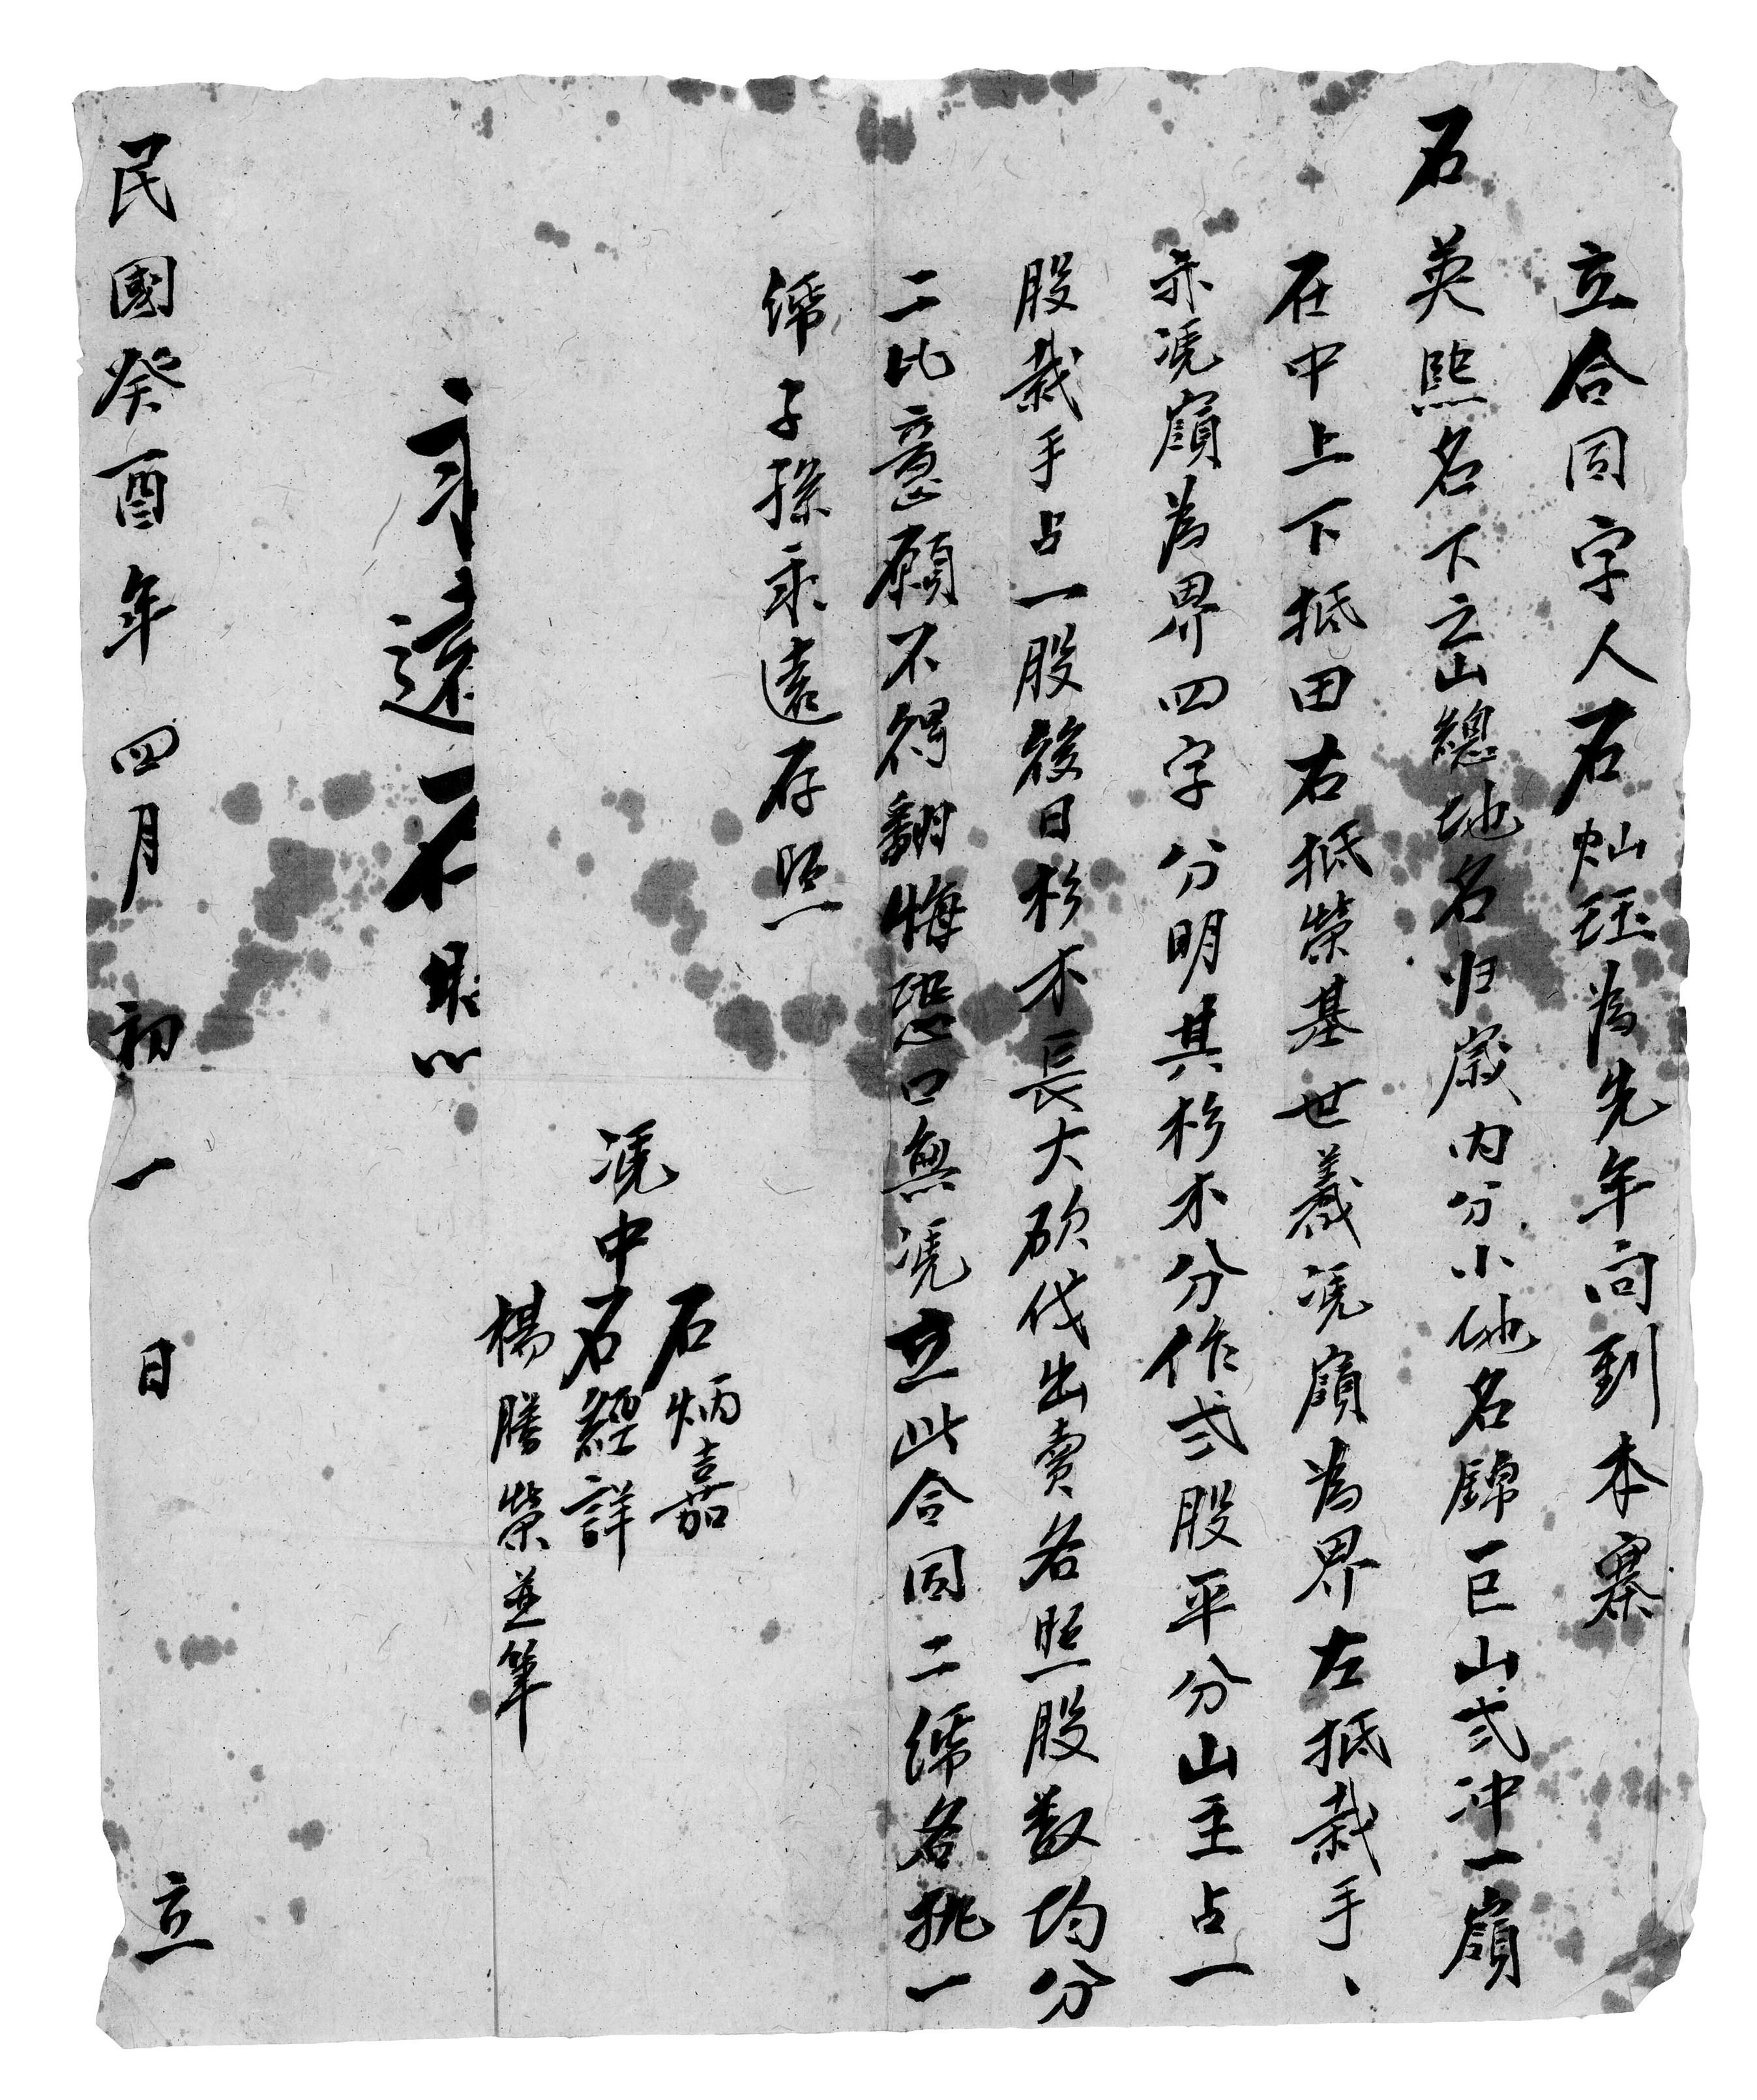 立合同字人石灿珏為先年问到本寨
石英熙名下之山總地名归嵗内分小地名錦巨山弍冲一嶺
在中上下抵田右抵榮基世義凴嶺為界左抵栽手、
亦凴嶺為界四字分明其杉木分作弍股平分山主占一
股栽手占一股後日杉木長大砍伐出賣各照股数均分
二比意願不得翻悔恐口無凴立此合同二䋨各执一
䋨子孫永遠存照
石炳嘉
凴中石經詳
楊勝榮並筆
民國癸酉年四月初一日立